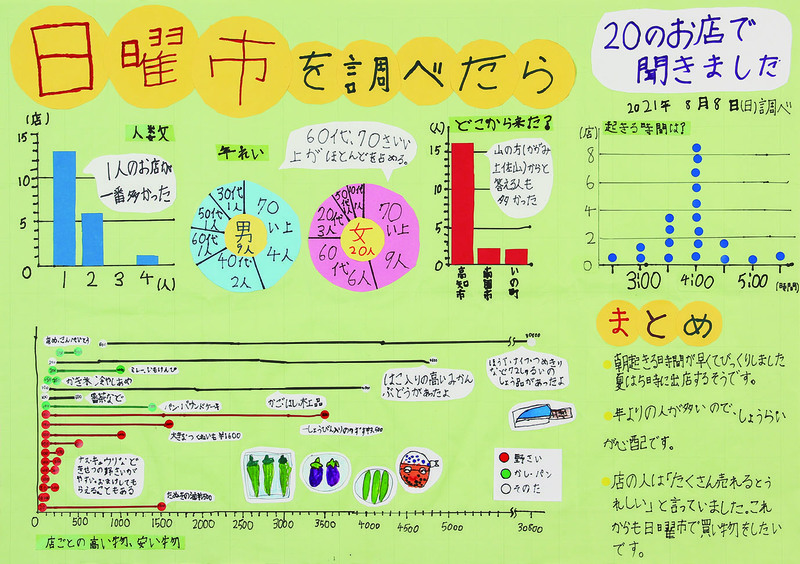 日曜市を調べたら
20のお店で
聞きました
2021年 8月8日(日)調べ
(店)
人数
15
10
5
0
1 2 3 4 (人)
1人のお店が
一番多かった
年れい
60代、70さい以
上がほとんどを占める。
男
9人
70
い上
4人
40代
2人
60代
1人
50代
1人
30代
1人
女
20人
70
い上
9人
60
代
6人
20代
3人
どこから来た?
(人)
15
10
5
0
高知市
南国市
いの町
山の方(かがみ
土佐山)からと
答える人も
多かった
起きる時間は?
(店)
8
6
4
2
0
3:00 4:00 5:00 (時間)
まとめ
朝起きる時間が早くてびっくりしました
夏は5時に出店するそうです。
年よりの人が多いので、しょうらい
が心配です。
店の人は「たくさん売れるとう
れしい」と言っていました。これ
からも日曜市で買い物をしたい
です。
ほうちょう・ナイフ・つめきり
はこ入りの高いみかん
ぶどうがあったよ
かき氷、冷やしあめ
番茶など
パン・パウンドケーキ
かご・はし・木工品
大きなつくぬいも ¥1600
ナス・キュウリなど
きせつの野さいが
やすい。おまけしても
らえることもある
野さい
かし・パン
そのた
0 500 1000 1500 2000 2500 3000 3500 4000 4500 5000 30800
店ごとの高い物、安い物